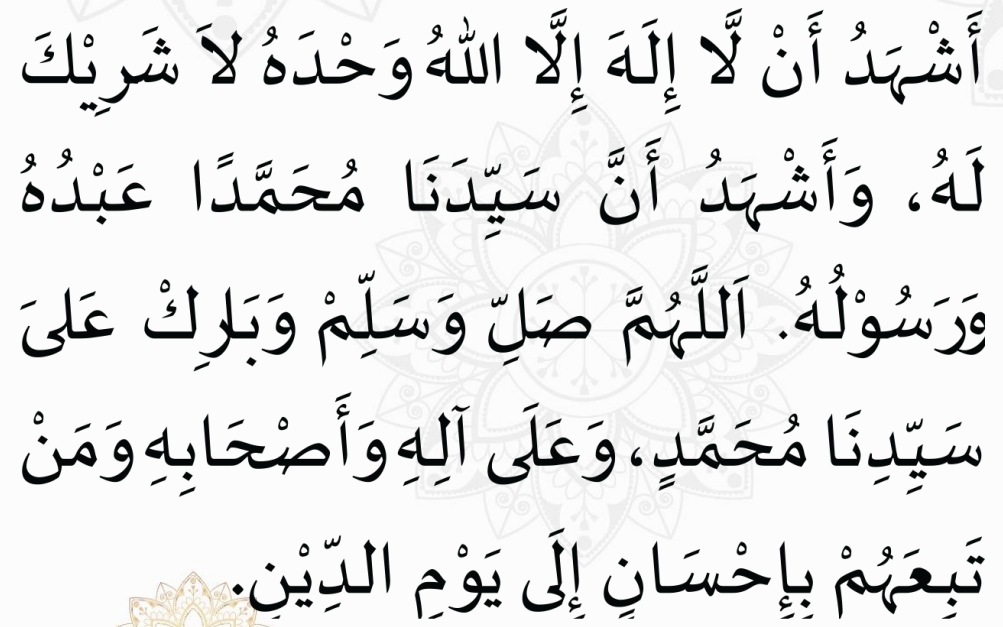 أَشْهَدُ أَنْ لَّا إِلَهَ إِلَّا اللهُ وَحْدَهُ لاَ شَرِيْكَ
لَهُ، وَأَشْهَدُ أَنَّ سَيِّدَنَا مُحَمَّدًا عَبْدُهُ
وَرَسُوْلُهُ. اَللَّهُمَّ صَلِّ وَسَلِّمْ وَبَارِكْ عَلىَ
سَيِّدِنَا مُحَمَّدٍ، وَعَلَى آلِهِ وَأَصْحَابِهِ وَمَنْ
تَبِعَهُمْ بِإِحْسَانٍ إِلَى يَوْمِ الدِّيْنِ.